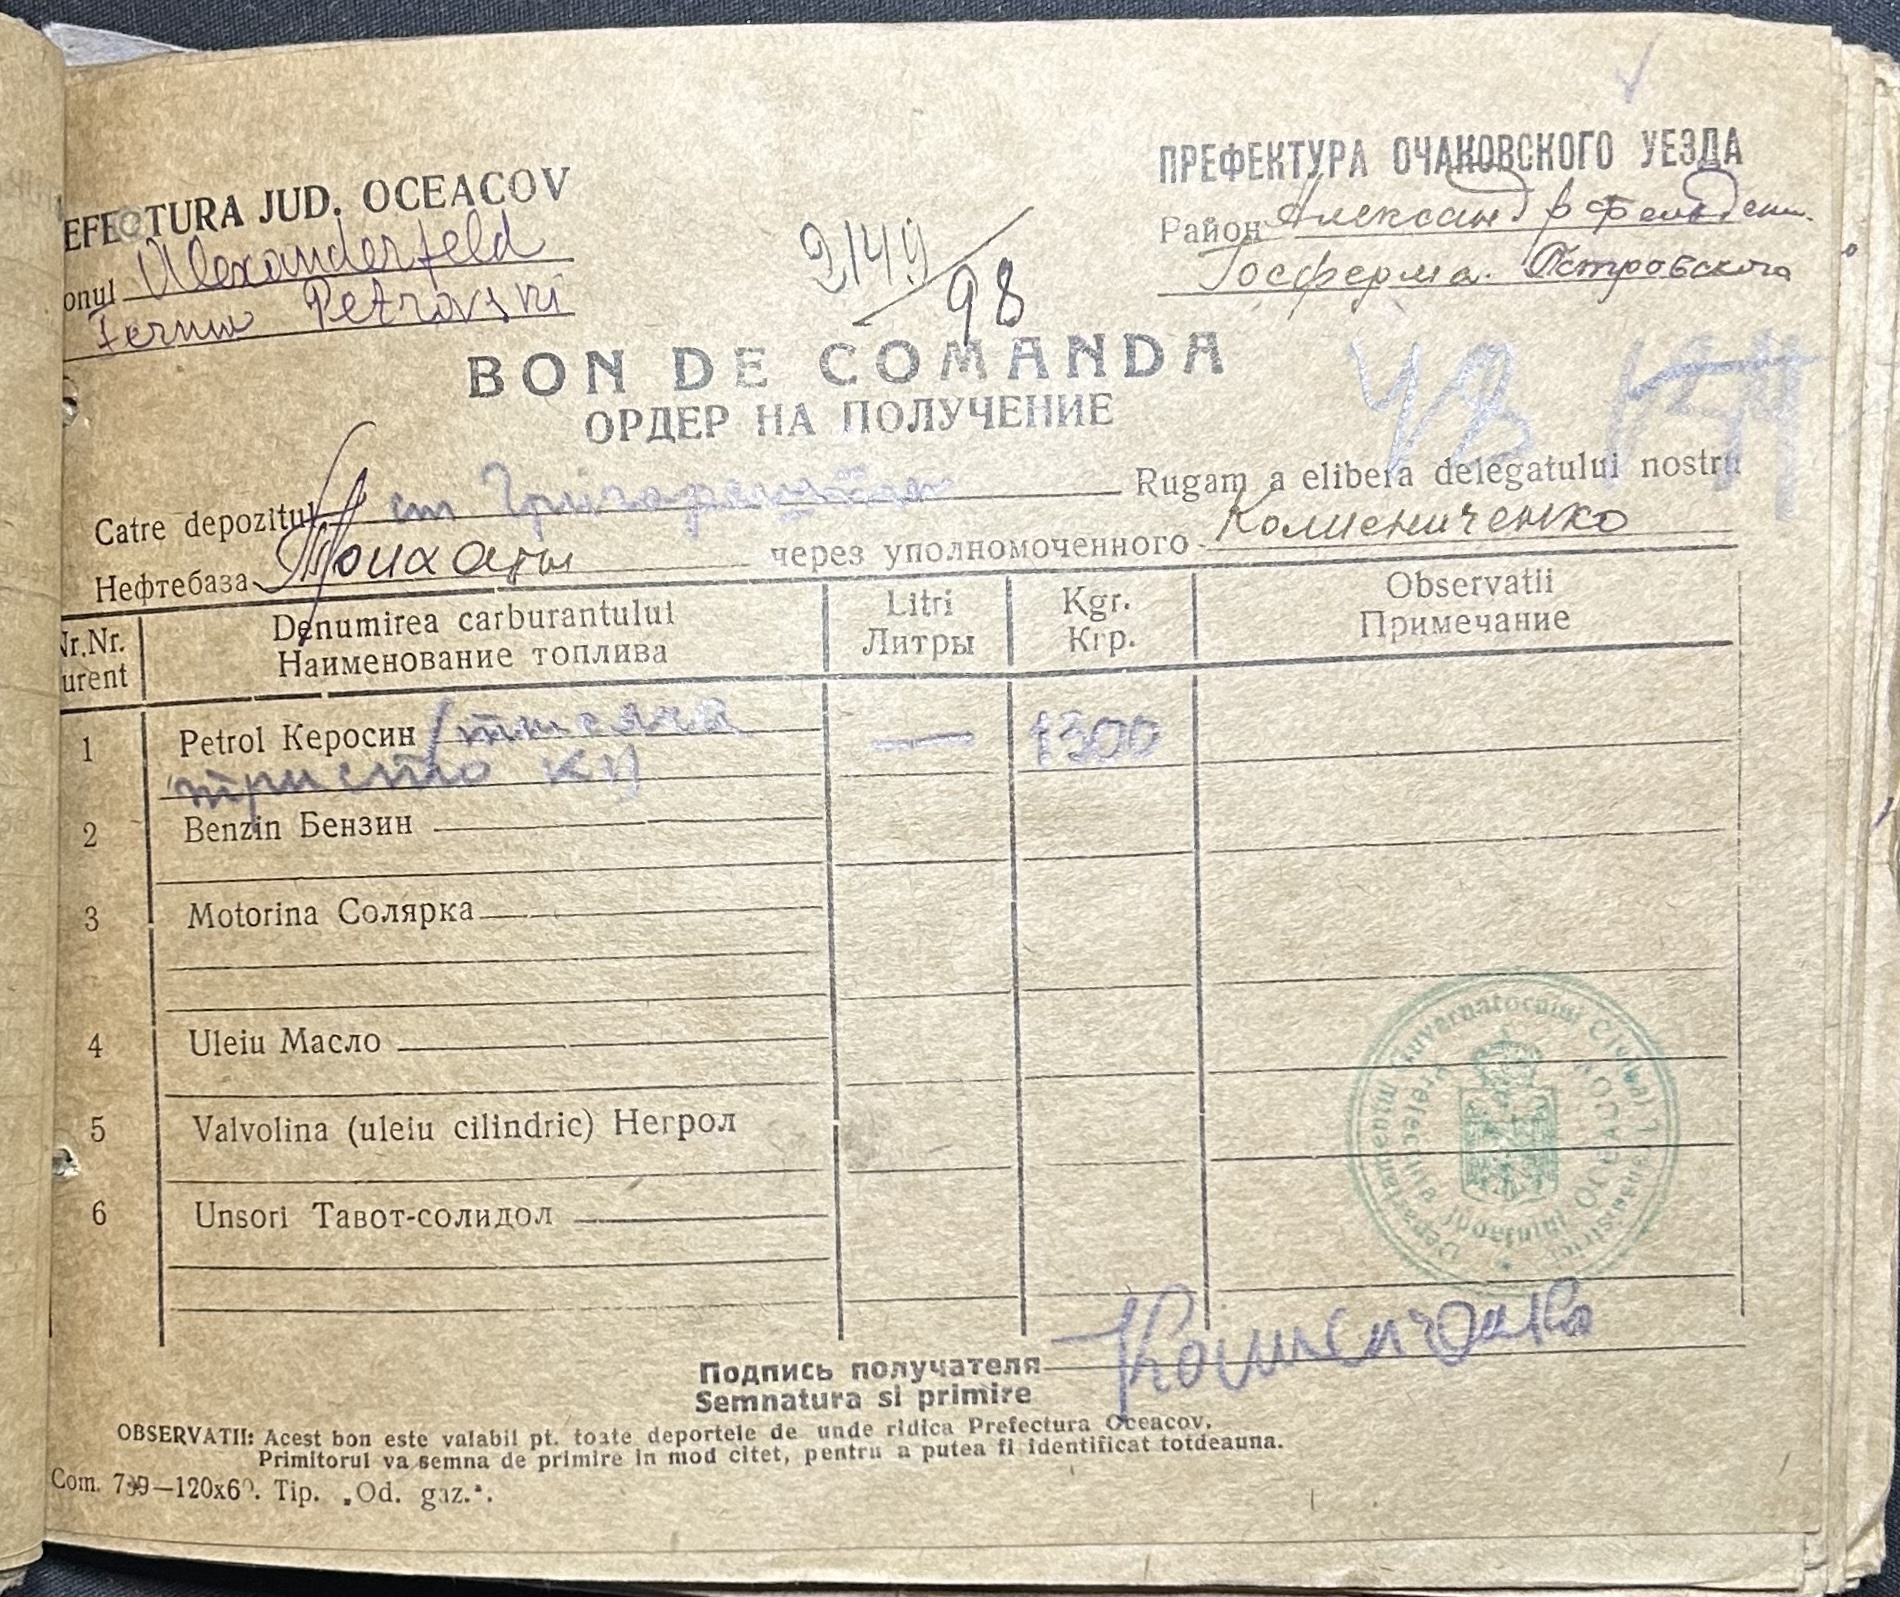 EFECTURA JUD. OCEACOV
onul Alexanderfeld
Ferma Petrovski
2149/98
ПРЕФЕКТУРА ОЧАКОВСКОГО УЕЗДА
Район Александрфельдск.
Госферма. Островского
BON DE COMANDA
ОРДЕР НА ПОЛУЧЕНИЕ
Catre depozitul ст Rugam a elibera delegatului nostru
Нефтебаза Трихаты через уполномоченного Колиениченко
Nr.Nr. urent
Denumirea carburantului
Наименование топлива
Litri
Литры
Kgr.
Кгр.
Observatii
Примечание
1 Petrol Керосин (тисяча — 1300
тристо кг)
2 Benzin Бензин
3 Motorina Солярка
4 Uleiu Масло
5 Valvolina (uleiu cilindric) Негрол
6 Unsori Тавот-солидол
Departamentul Guvernatorului Civil al Transnistriei
Prefectura Judetului
OCEACOV
Подпись получателя
Semnatura si primire
OBSERVATII: Acest bon este valabil pt. toate deportele de unde ridica Prefectura Oceacov.
Primitorul va semna de primire in mod citet, pentru a putea fi identificat totdeauna.
Com. 739—120x60. Tip. „Od. gaz.".